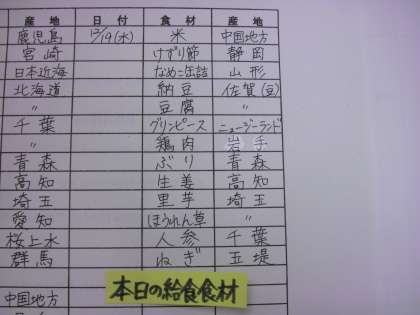 産地 日付 食材 産地
鹿児島 12/19(水) 米 中国地方
宮崎 けずり節 静岡
日本近海 なめこ缶詰 山形
北海道 納豆 佐賀(豆)
〃 豆腐 〃
千葉 グリンピース ニュージーランド
〃 鶏肉 岩手
青森 ぶり 青森
高知 生姜 高知
埼玉 里芋 埼玉
愛知 ほうれん草 〃
桜上水 人参 千葉
群馬 ねぎ 五堤
本日の給食食材
中国地方